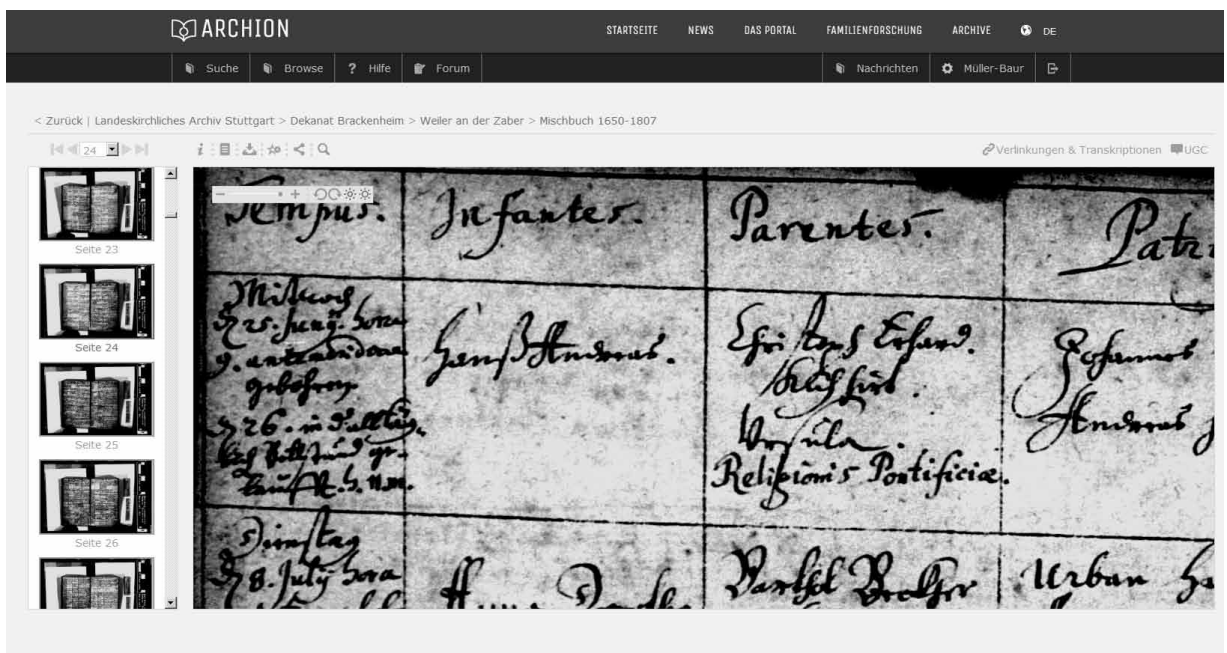 ARCHION
STARTSEITE NEWS DAS PORTAL FAMILIENFORSCHUNG ARCHIVE DE
Suche Browse ? Hilfe Forum Nachrichten Müller-Baur
< Zurück | Landeskirchliches Archiv Stuttgart > Dekanat Brackenheim > Weiler an der Zaber > Mischbuch 1650-1807
24
Verlinkungen & Transkriptionen UGC
Seite 23
Seite 24
Seite 25
Seite 26
Tempus. Infantes. Parentes. Patri
Mitwoch
25. Junij. hora
9. antemeridiana
gebohren
26. in
Hanß Andreas.
Christoph Erhard.
Ursula.
Religionis Pontificiæ.
Johannes
Andreas
Dienstag
8. Julij hora
Anna
Barthel
Urban